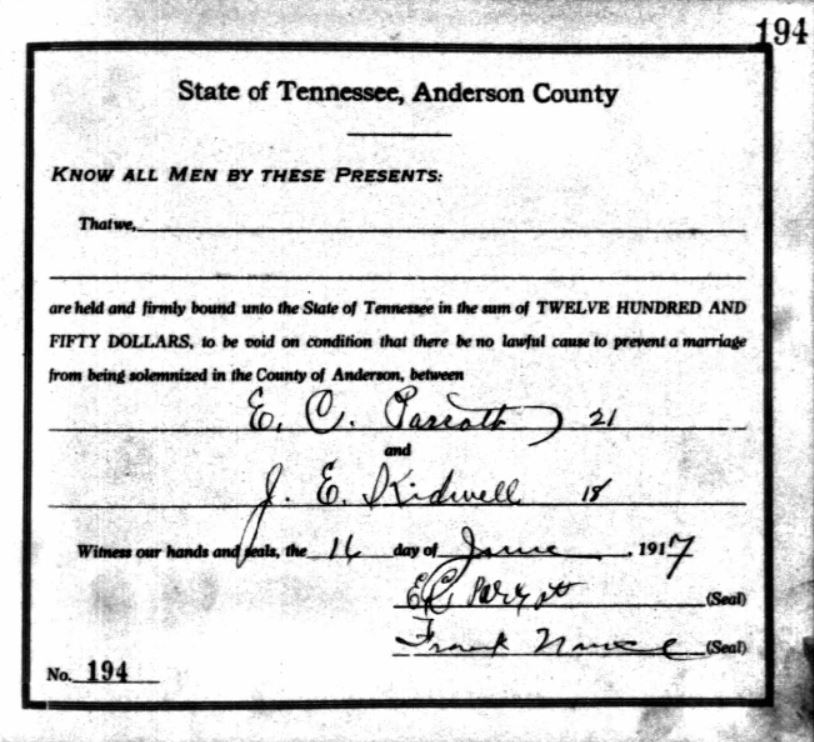 194
State of Tennessee, Anderson County
KNOW ALL MEN BY THESE PRESENTS:
That we,
are held and firmly bound unto the State of Tennessee in the sum of TWELVE HUNDRED AND
FIFTY DOLLARS, to be void on condition that there be no lawful cause to prevent a marriage
from being solemnized in the County of Anderson, between
E. C. Parrott 21
and
J. E. Kidwell 18
Witness our hands and seals, the 16 day of June, 1917
E C Parrott (Seal)
Frank Nance (Seal)
No. 194